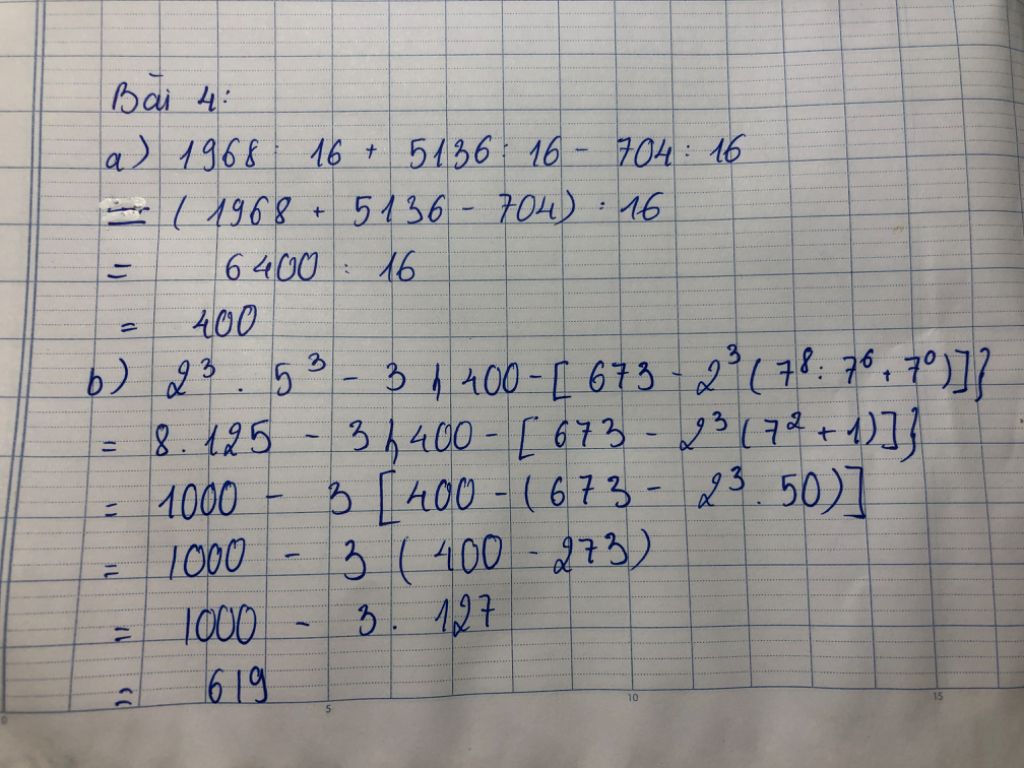 Bài 4:
a) 1968 : 16 + 5136 : 16 - 704 : 16
= (1968 + 5136 - 704) : 16
= 6400 : 16
= 400
b) 2³ . 5³ - 3 { 400 - [ 673 - 2³ (7⁸ : 7⁶ + 7⁰)]}
= 8.125 - 3 { 400 - [ 673 - 2³ (7² + 1)]}
= 1000 - 3 [ 400 - (673 - 2³ . 50)]
= 1000 - 3 ( 400 - 273)
= 1000 - 3 . 127
= 619
0 5 10 15